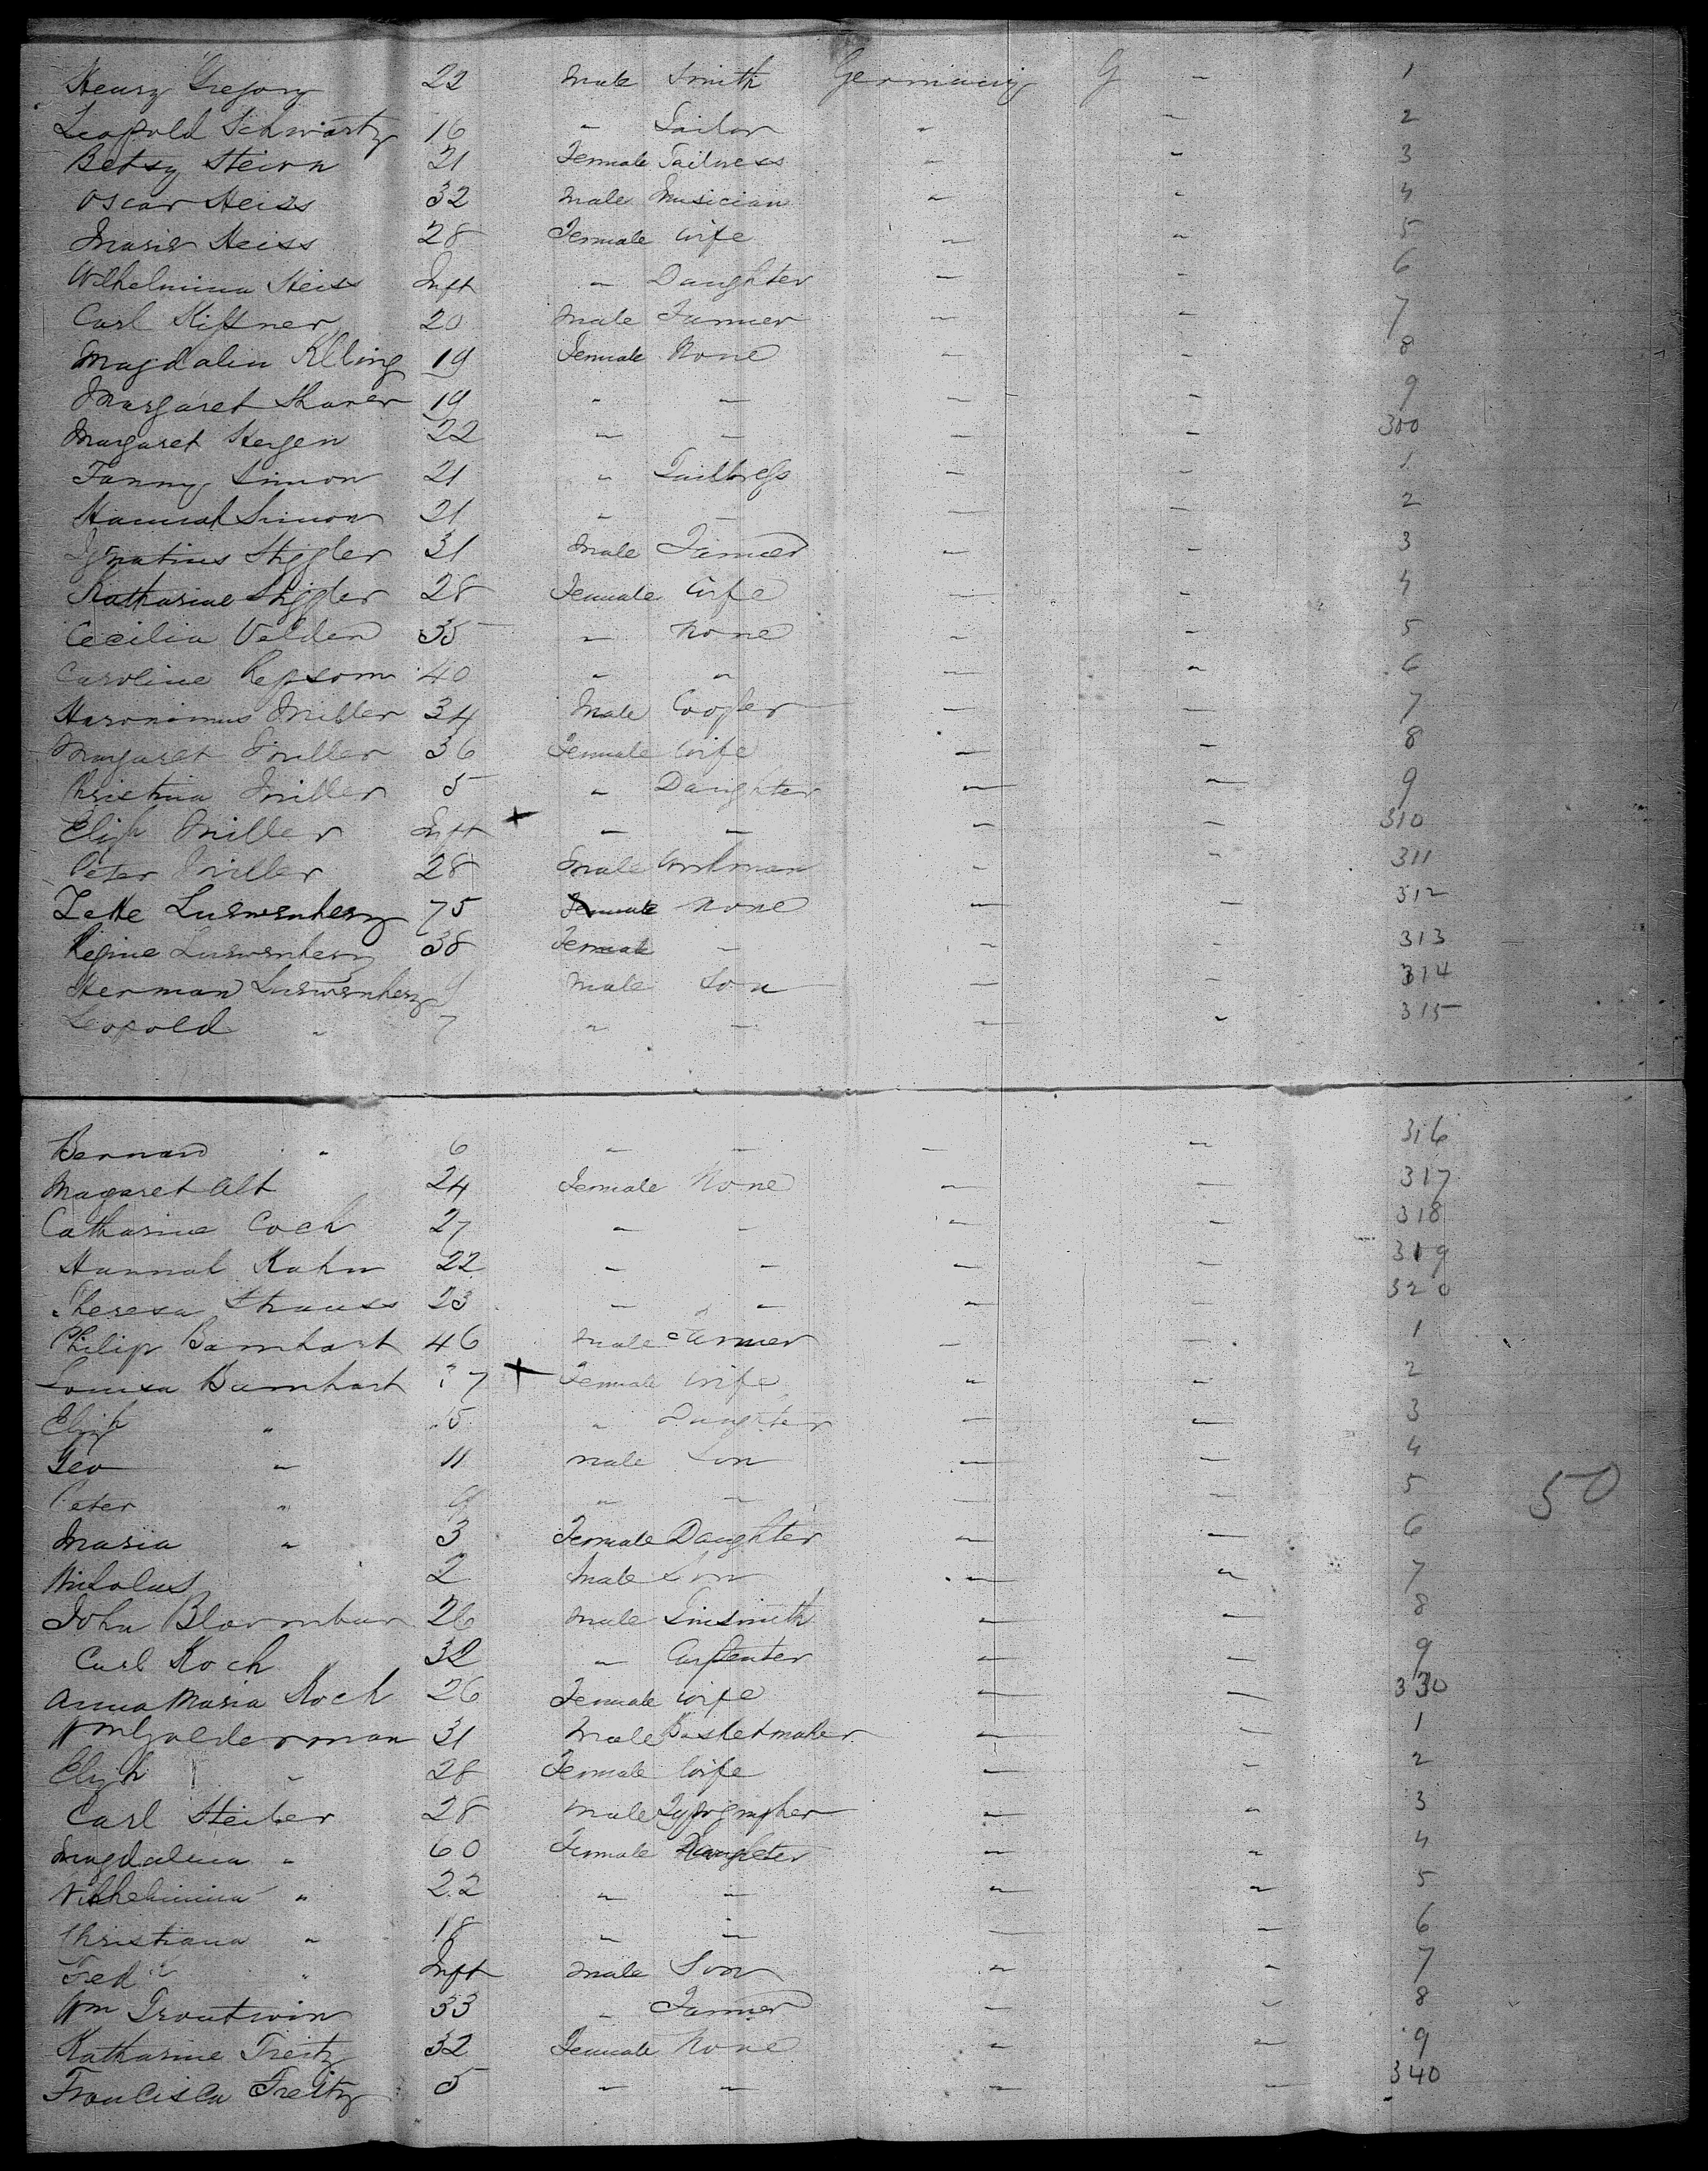 Henry Gregory 22 Male Smith Germany G - 1
Leopold Schwartz 16 " Tailor " - 2
Betsy Steirn 21 Female Tailoress - - 3
Oscar Heiss 32 Male Musician - - 4
Marie Heiss 28 Female Wife - - 5
Wilhelmina Heiss Inft " Daughter - - 6
Carl 20 Male Farmer - - 7
Magdalin 19 Female None - - 8
Margaret 19 " - - - 9
Margaret 22 - - - - 300
Fanny Simon 21 " Tailoress - - 1
Hannah Simon 21 " - - - 2
Ignatius Stiggler 31 Male Farmer - - 3
Katharine Stiggler 28 Female Wife - - 4
Cecilia Velden 35 " None - - 5
Caroline 40 " " - - 6
Haronimus Miller 34 Male Cooper - - 7
Margaret Miller 36 Female Wife - - 8
Christina Miller 5 " Daughter - - 9
Elizh Miller Inft + - - - - 310
Peter Miller 28 Male Workman - - 311
75 Female None - - 312
Regine 38 Female - - - 313
Herman 9 Male Son - - 314
Leopold " 7 " - - - 315
Bernard " 6 - - - - 316
Magaret Alt 24 Female None - - 317
Catharine Coch 27 - - - - 318
Hannah Kahn 22 - - - - 319
Theresa Strauss 23 - - - - 320
Philip Barnhart 46 Male Farmer - - 1
Louisa Barnhart 37 + Female Wife - - 2
Elizh " 15 " Daughter - - 3
Geo " 11 Male Son - - 4
Peter " 9 - - - - 5
50
Maria " 3 Female Daughter - - 6
Nicholas 2 Male Son - - 7
John 26 Male Tinsmith - - 8
Carl Koch 32 " Carpenter - - 9
Anna Maria Koch 26 Female Wife - - 330
Wm Golderman 31 Male Basketmaker - - 1
Elizh " 28 Female Wife - - 2
Carl Steiber 28 Male Typographer - - 3
Magdalena " 60 Female Daughter - - 4
Wilhelmina " 22 " - - - 5
Christiana " 18 " - - - 6
Fredk " Inft Male Son - - 7
Wm Troutwin 33 " Farmer - - 8
Katharine Treitz 32 Female None - - 9
Francisca Treitz 5 - - - - 340